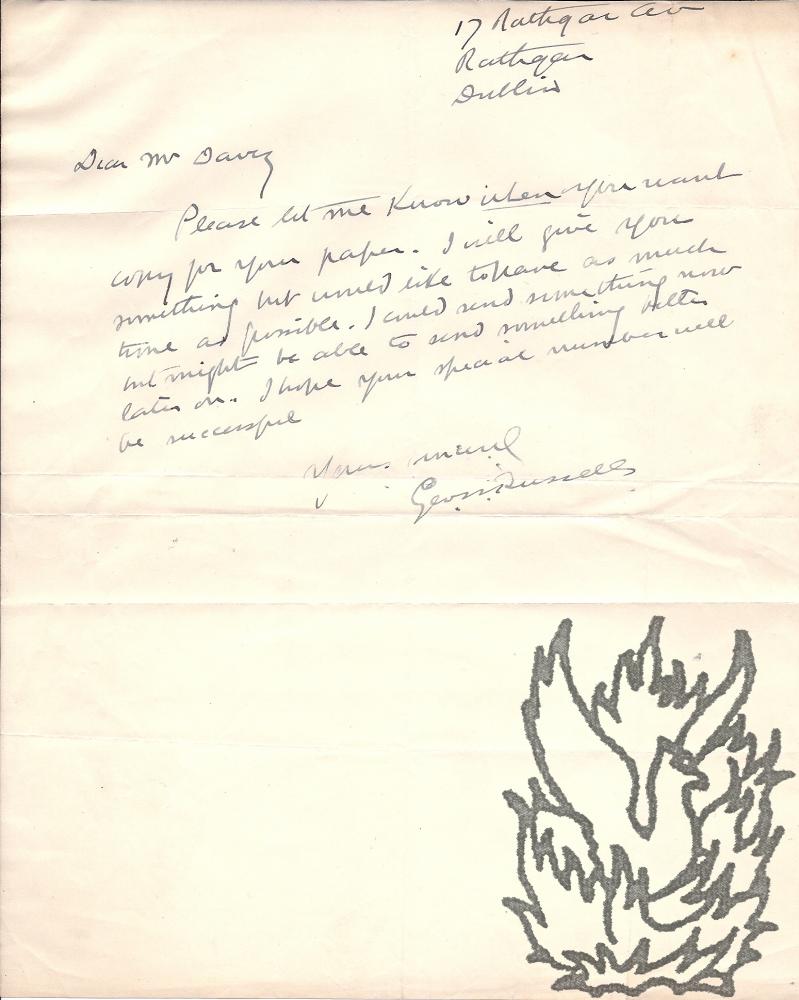 17 Rathgar Av
Rathgar
Dublin
Dear Mr Davey
Please let me know when you want
copy for your paper. I will give you
something but would like to have as much
time as possible. I could send something now
but might be able to send something better
later on. I hope your special number will
be successful
Yours
Geo Russell